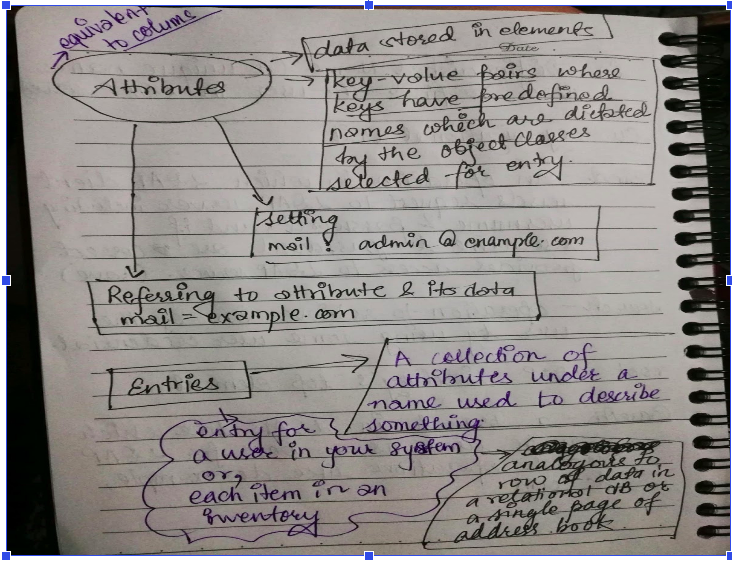 equivalent
to column
Attributes
data stored in elements
Date
key-value pairs where
keys have predefined
names which are dictated
by the object classes
selected for entry.
setting
mail: admin@example.com
Referring to attribute & its data
mail = example.com
Entries
A collection of
attributes under a
name used to describe
something.
entry for
a user in your system
or,
each item in an
inventory
analogous to
row of data in
a relational dB or
a single page of
address book